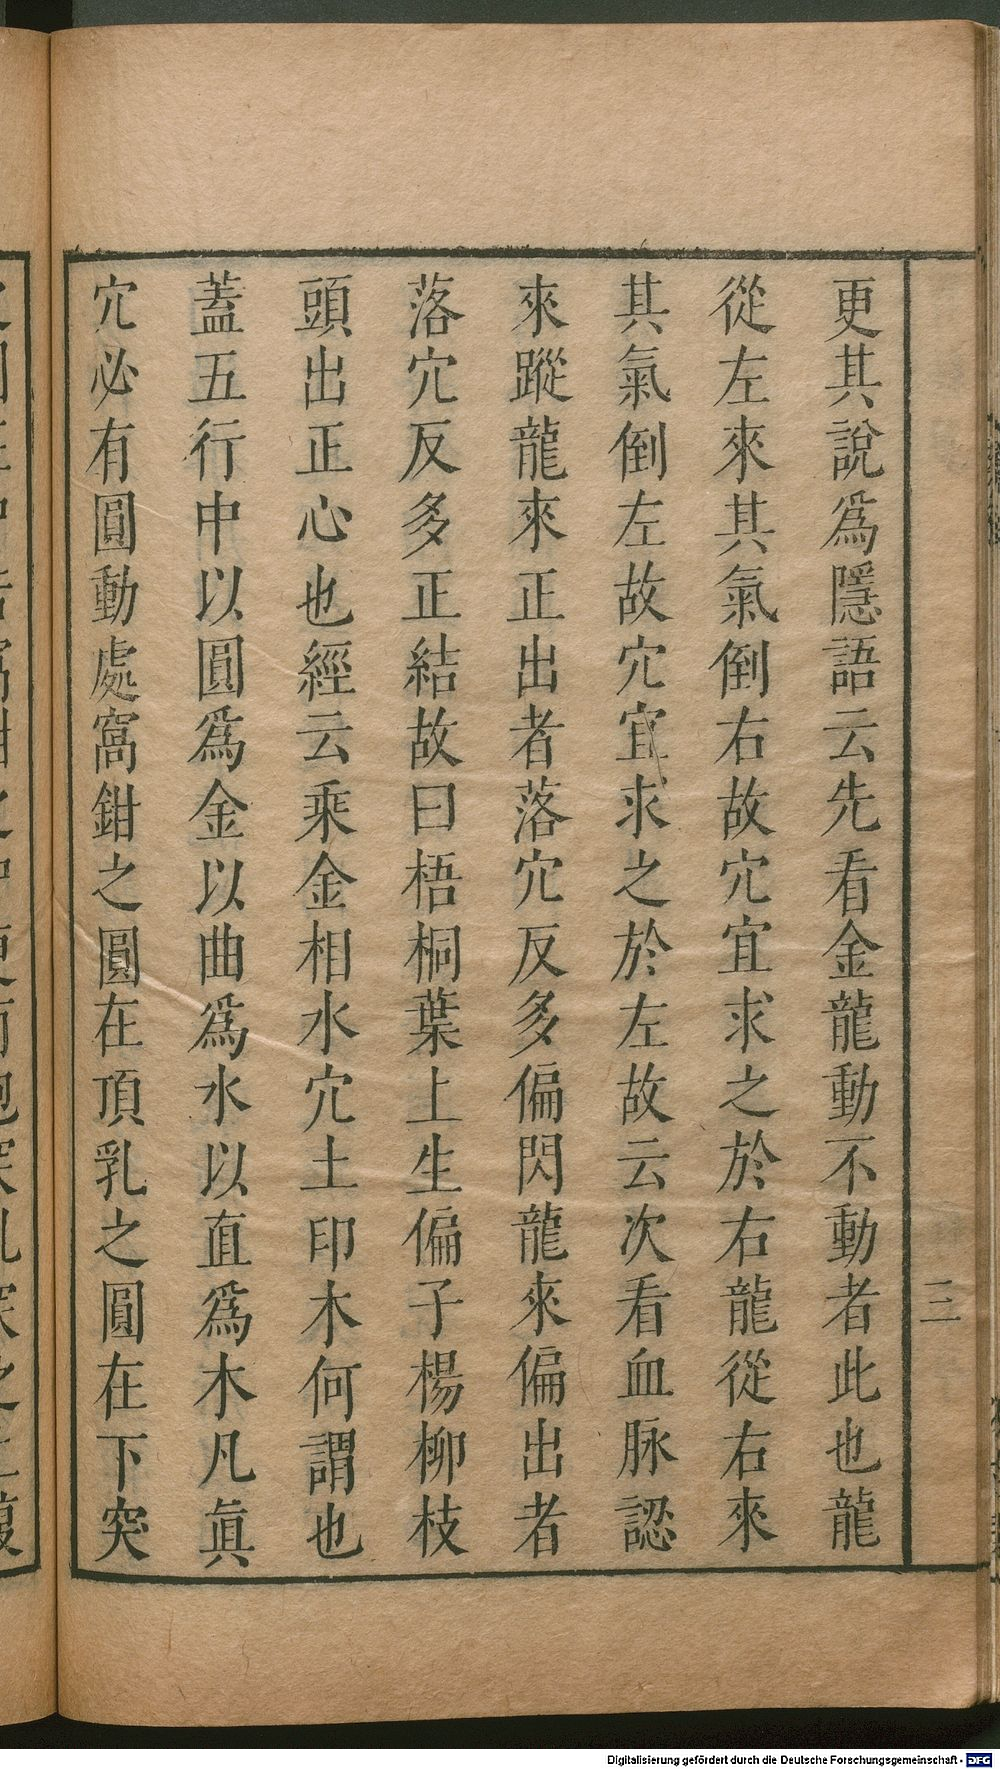 更其說爲隱語云先看金龍動不動者此也龍
從左來其氣倒右故穴宜求之於右龍從右來
其氣倒左故穴宜求之於左故云次看血脉認
來蹤龍來正出者落穴反多偏閃龍來偏出者
落穴反多正結故曰梧桐葉上生偏子楊柳枝
頭出正心也經云乘金相水穴土印木何謂也
蓋五行中以圓爲金以曲爲水以直爲木凡眞
穴必有圓動處窩鉗之圓在頂乳之圓在下突
三
Digitalisierung gefördert durch die Deutsche Forschungsgemeinschaft - DFG